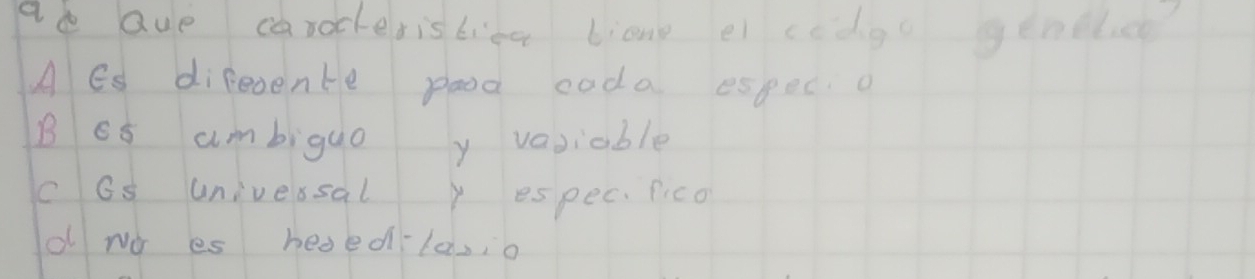 a ¿ Que caracteristica tiene el codigo genetico?
A Es diferente para cada especie
B es ambiguo y variable
C Es universal y especifico
d No es hereditario